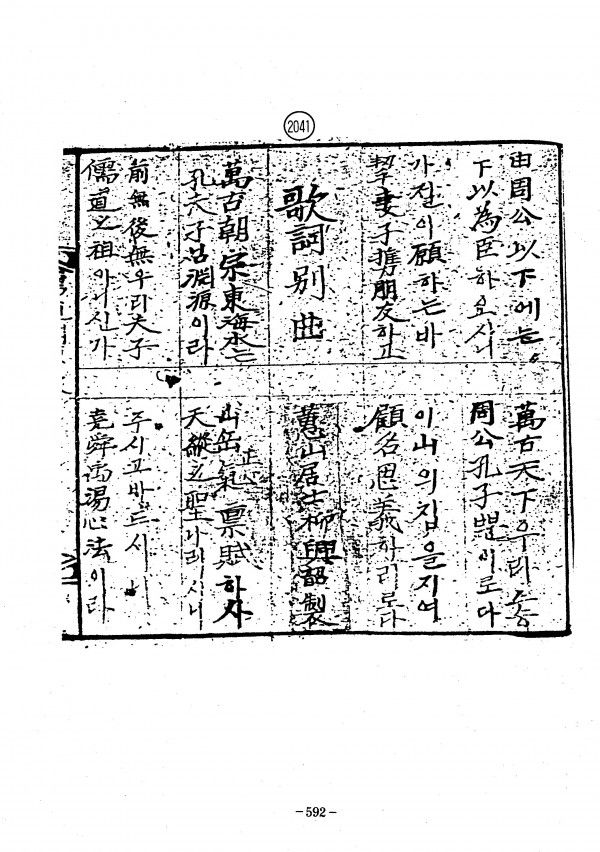 2041
由周公以下에는
萬古天下우리스승
下以為臣하오시니
周公孔子뿐이로다
가절이願하는바
이山의집을지여
挈妻子携朋友하고
顧名思義하리로다
歌詞別曲
山居士柳興韶製
萬古朝宗東海水는
山岳正氣稟賦하사
孔夫子 淵源이라
天縱之聖나리시니
前無後無우리夫子
주시고받드시
儒道之祖아니신가
堯舜禹湯心法이라
-592-